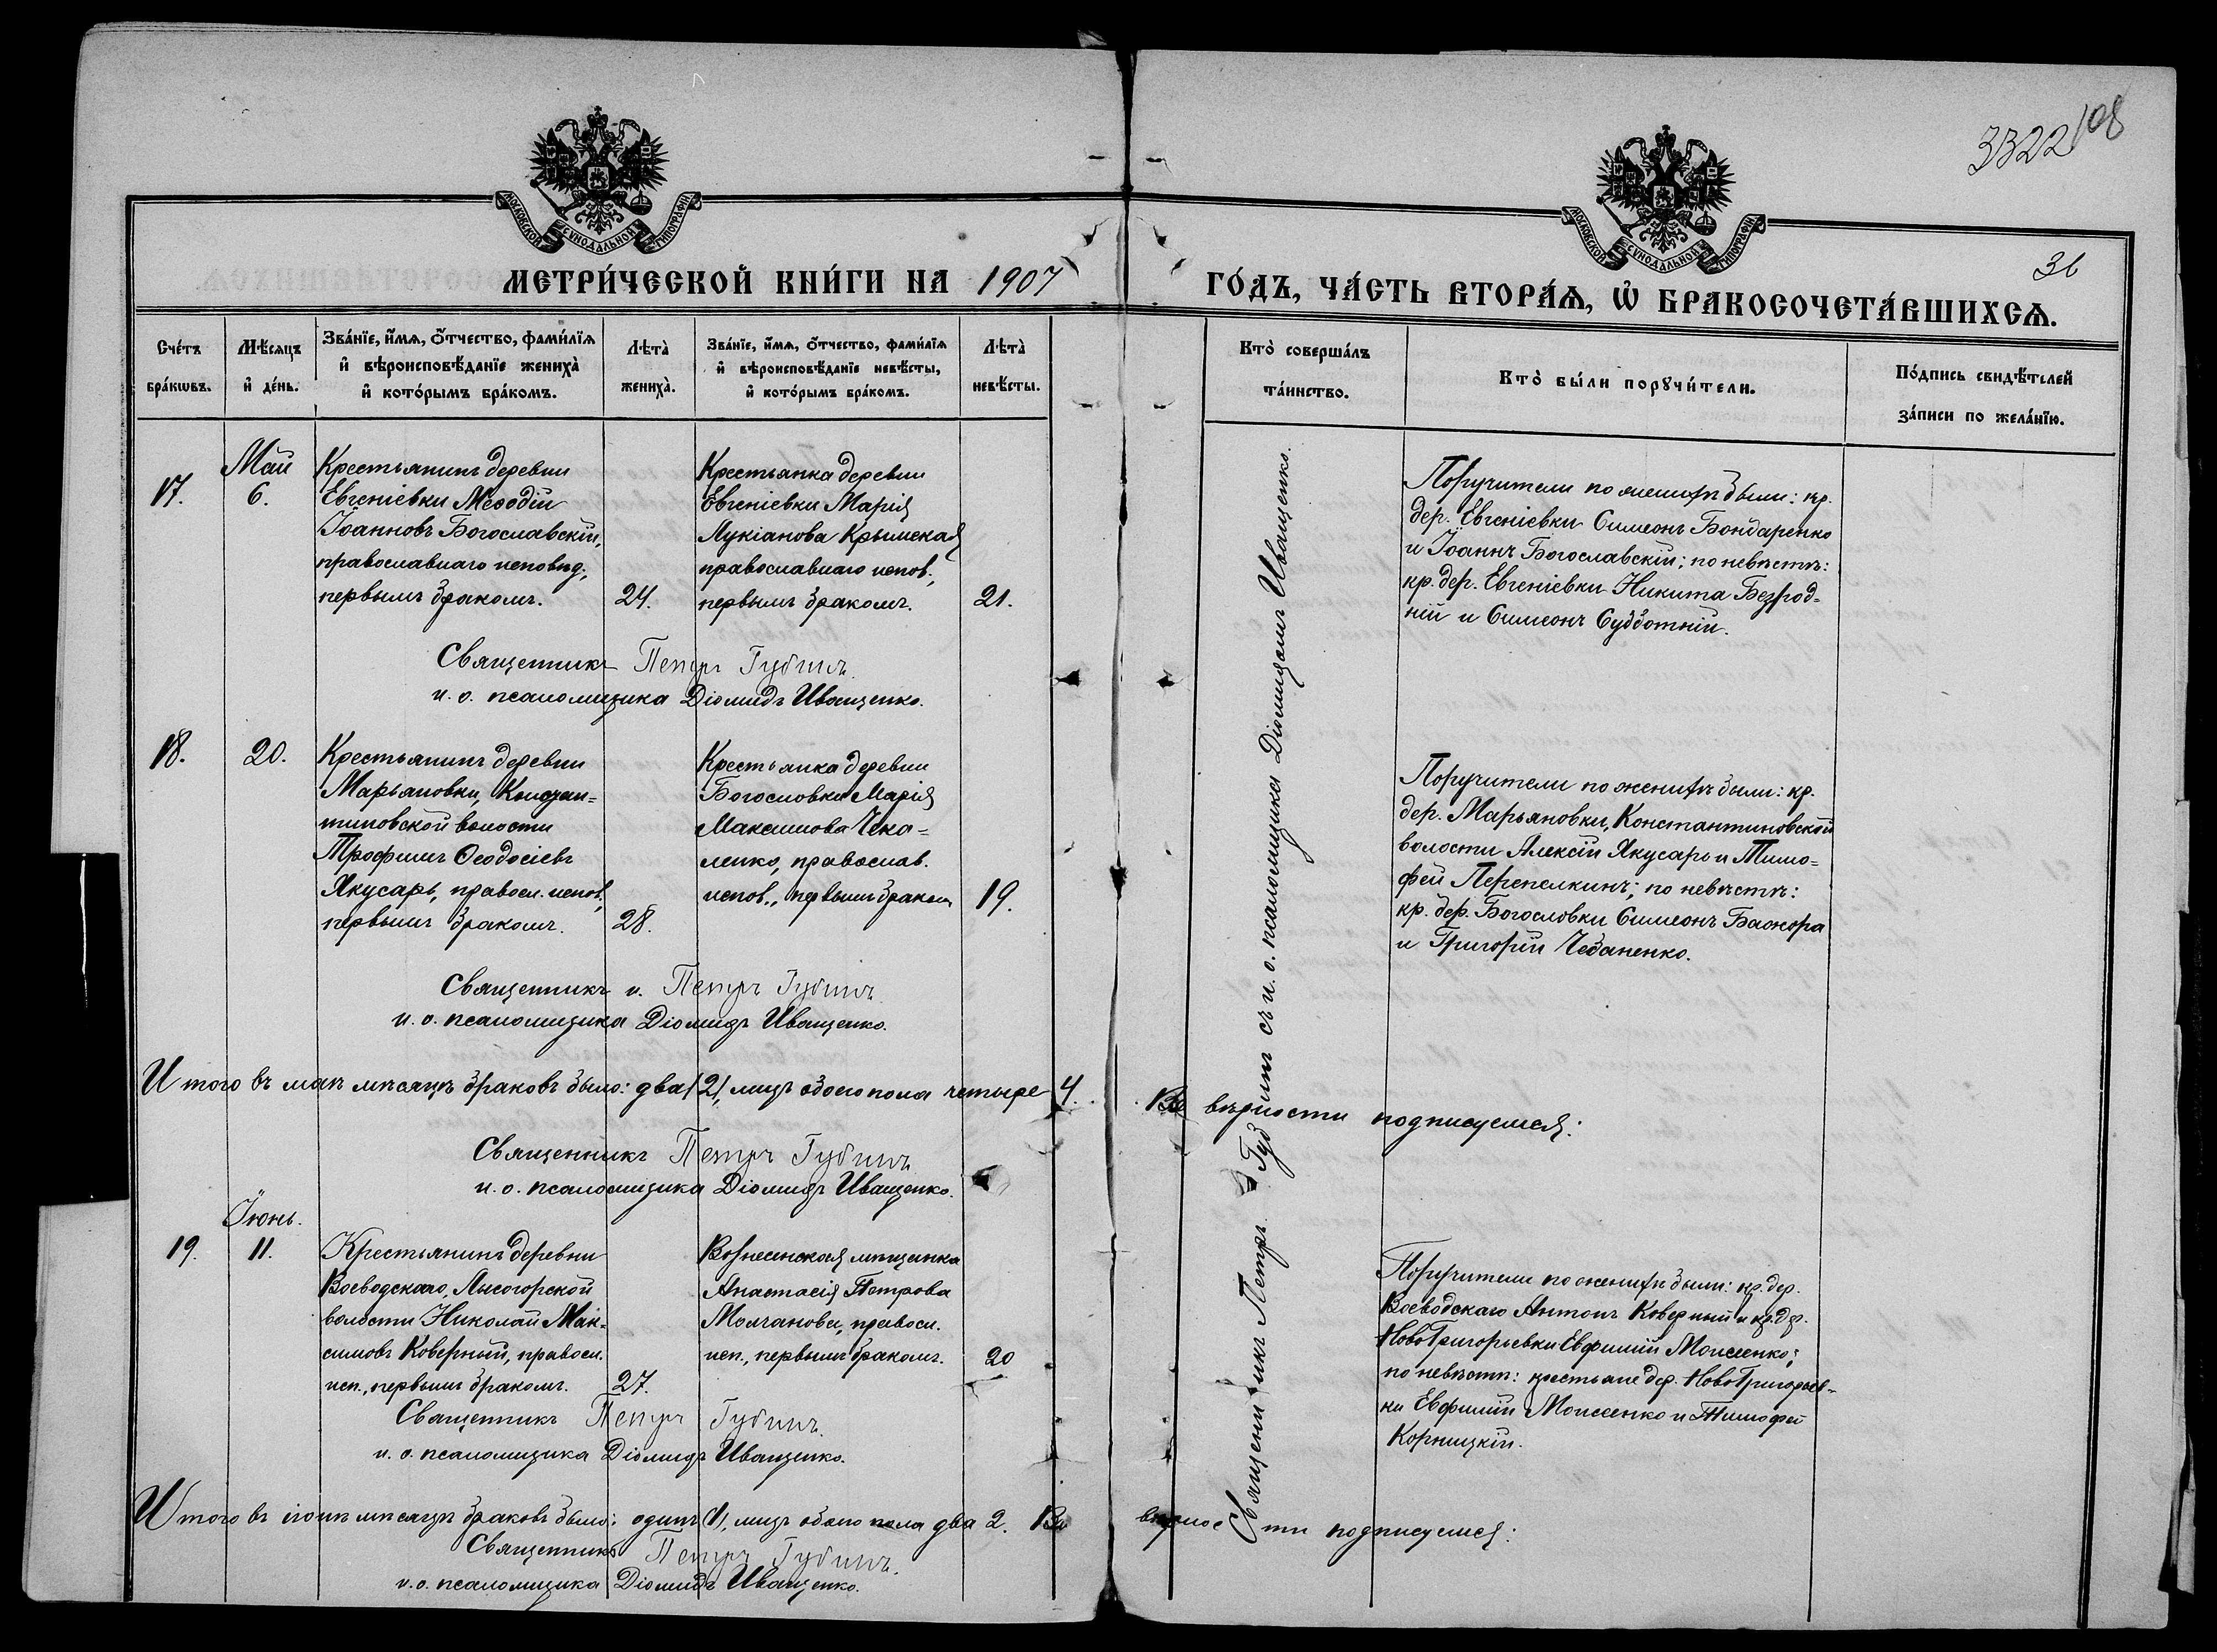 3322
108
36
МОСКОВСКОЙ СѴНОДАЛЬНОЙ ТИПОГРАФІИ
МОСКОВСКОЙ СѴНОДАЛЬНОЙ ТИПОГРАФІИ
МЕТРИ́ЧЕСКОЙ КНИ́ГИ НА 1907 ГО́ДЪ, ЧА́СТЬ ВТОРА́Я, Ѽ БРАКОСОЧЕТА́ВШИХСЯ.
Сче́тъ бра́кѡвъ.
Мѣ́сяцъ и҆ де́нь.
Зва́нїе, и҆́мя, ѻ҆́тчество, фами́лїя и҆ вѣроисповѣ́данїе жениха̀ и҆ кото́рымъ бра́комъ.
Лѣта̀ жениха̀.
Зва́нїе, и҆́мя, ѻ҆́тчество, фами́лїя и҆ вѣроисповѣ́данїе невѣ́сты, и҆ кото́рымъ бра́комъ.
Лѣта̀ невѣ́сты.
Кто̀ соверша́лъ та́инство.
Кто̀ бы́ли порꙋчи́тели.
По́дпись свидѣ́телей за́писи по жела́нїю.
17.
Май
6.
Крестьянинъ деревни
Евгеніевки Меѳодій
Іоанновъ Богославскій,
православнаго исповѣд.,
первымъ бракомъ.
24.
Крестьянка деревни
Евгеніевки Марія
Лукіанова Крымская
православнаго испов.,
первымъ бракомъ.
21.
Поручители по женихѣ были: кр.
дер. Евгеніевки Симеонъ Бондаренко
и Іоаннъ Богославскій; по невѣстѣ:
кр. дер. Евгеніевки Никита Безрод=
ній и Симеонъ Субботній.
Священникъ Петръ Губинъ.
и. о. псаломщика Діомидъ Иващенко.
18.
20.
Крестьянинъ деревни
Марьяновки, Констан=
тиновской волости
Трофимъ Ѳеодосіевъ
Якусарь, правосл. испов.,
первымъ бракомъ.
28.
Крестьянка деревни
Богословки Марія
Максимова Чека=
ленко, православ.
испов., первымъ бракомъ
19.
Поручители по женихѣ были: кр.
дер. Марьяновки, Константиновской
волости Алексій Якусарь и Тимо=
фей Перепелкинъ; по невѣстѣ:
кр. дер. Богословки Симеонъ Бажора
и Григорій Чебаненко.
Священникъ Петръ Губинъ
и. о. псаломщика Діомидъ Иващенко.
Итого въ маѣ мѣсяцѣ браковъ было: два (2), лицъ обоего пола четыре 4. Въ вѣрности подписуемся:
Священникъ Петръ Губинъ
и. о. псаломщика Діомидъ Иващенко.
Іюнь.
19.
11.
Крестьянинъ деревни
Воеводскаго, Лысогорской
волости Николай Мак-
симовъ Коверный, правосл.
исп., первымъ бракомъ.
27.
Вознесенская мѣщанка
Анастасія Петрова
Молчанова, правосл.
исп., первымъ бракомъ.
20
Поручители по женихѣ были: кр. дер.
Воеводскаго Антонъ Коверный и кр. дер.
НовоГригорьевки Евфимій Моисеенко;
по невѣстѣ: крестьяне дер. НовоГригорьев-
ки Евфимій Моисеенко и Тимофей
Корницкій.
Священникъ Петръ Губинъ.
и. о. псаломщика Діомидъ Иващенко.
Итого въ іюнѣ мѣсяцѣ браковъ было: одинъ (1), лицъ обоего пола два 2. Въ вѣрности подписуемся:
Священникъ Петръ Губинъ.
и. о. псаломщика Діомидъ Иващенко.
Священникъ Петръ Губинъ съ и. о. псаломщика Діомидомъ Иващенко.